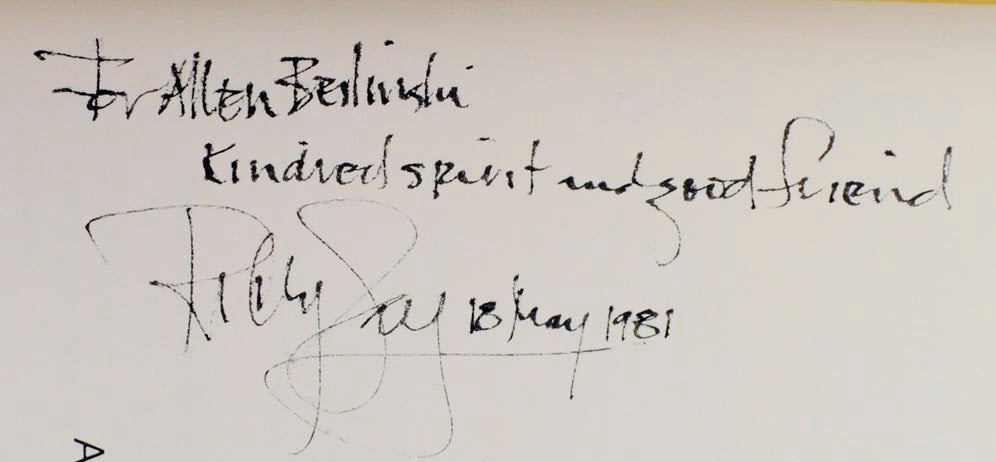 For Allen Berlinski
Kindred spirit and good friend
Ricky Jay 18 May 1981
A